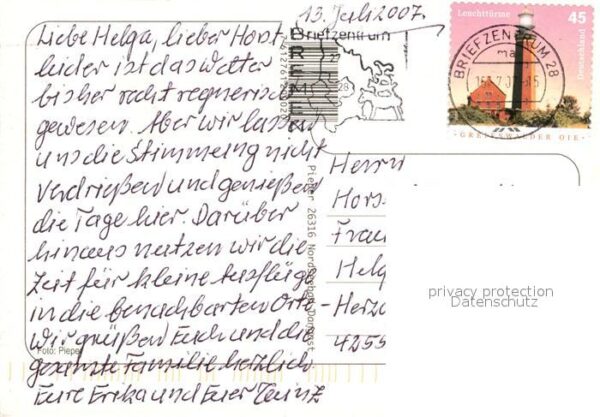 13. Juli 2007.
Liebe Helga, lieber Horst
leider ist das Wetter
bisher recht regnerisch
gewesen. Aber wir lassen
uns die Stimmung nicht
verdrießen und genießen
die Tage hier. Darüber
hinaus nutzen wir die
Zeit für kleine Ausflüge
in die benachbarten Orte.
Wir grüßen Euch und die
gesamte Familie herzlich
Eure Erika und Euer Heinz
Foto: Pieper
Briefzentrum
BREMEN
28
Pieper 26316 Nordseebad Dangast
Leuchttürme 45
Deutschland
BRIEFZENTRUM 28
GREIFSWALDER OIE
Herrn
Hors
Frau
Helg
Herzo
4255
privacy protection
Datenschutz